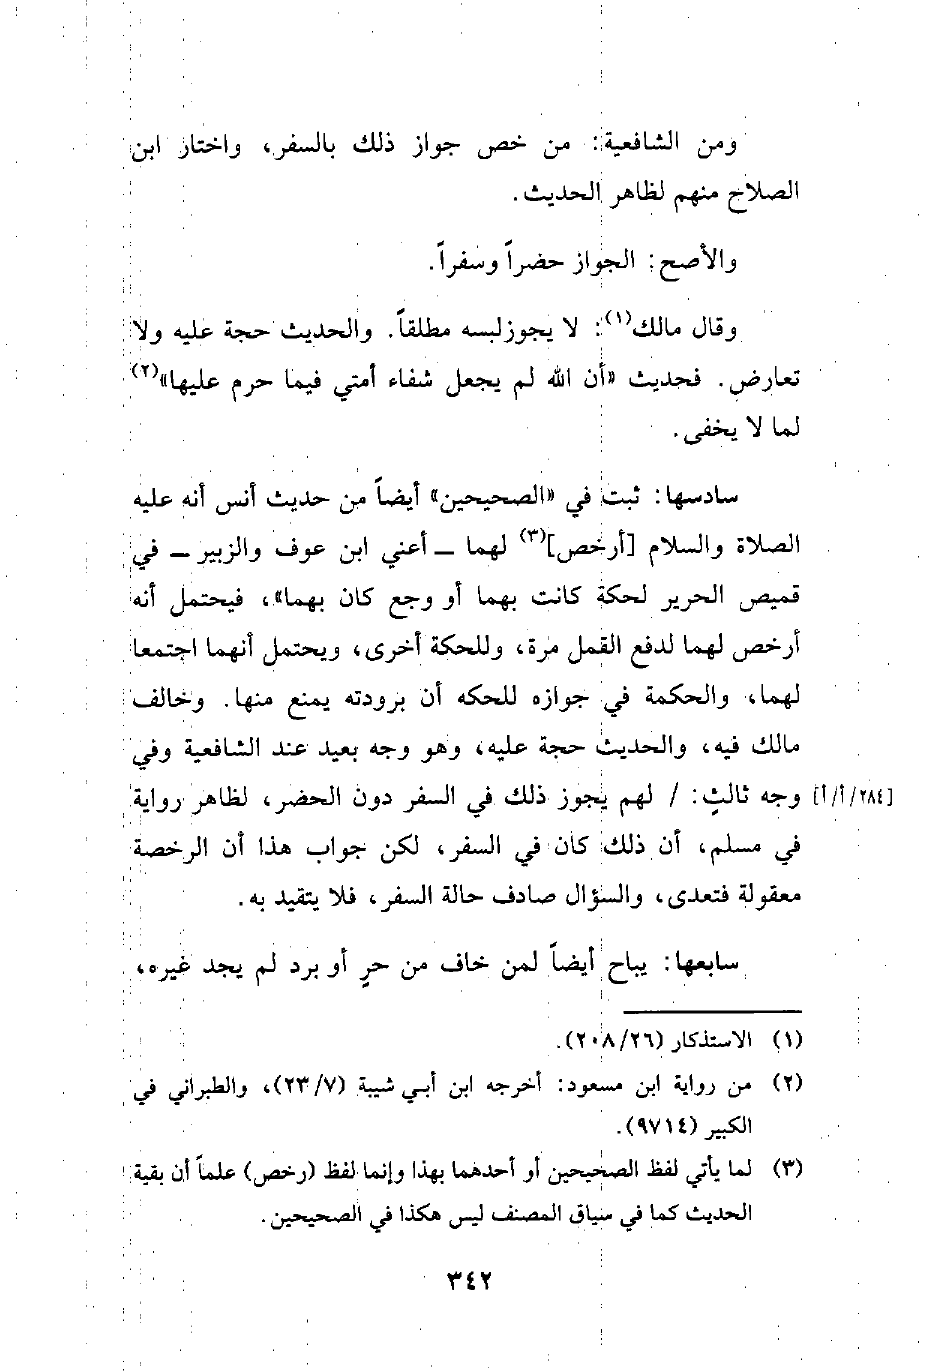 ومن الشافعية: من خص جواز ذلك بالسفر، واختار ابن
الصلاح منهم لظاهر الحديث.
والأصح: الجواز حضراً وسفراً.
وقال مالك(١): لا يجوز لبسه مطلقاً. والحديث حجة عليه ولا
تعارض. فحديث «أن الله لم يجعل شفاء أمتي فيما حرم عليها»(٢)
لما لا يخفى.
سادسها: ثبت في «الصحيحين» أيضاً من حديث أنس أنه عليه
الصلاة والسلام [أرخص](٣) لهما ــ أعني ابن عوف والزبير ــ في
قميص الحرير لحكة كانت بهما أو وجع كان بهما»، فيحتمل أنه
أرخص لهما لدفع القمل مرة، وللحكة أخرى، ويحتمل أنهما اجتمعا
لهما، والحكمة في جوازه للحكه أن برودته يمنع منها. وخالف
مالك فيه، والحديث حجة عليه، وهو وجه بعيد عند الشافعية وفي
[٢٨٤/أ/أ] وجه ثالثٍ: / لهم يجوز ذلك في السفر دون الحضر، لظاهر رواية
في مسلم، أن ذلك كان في السفر، لكن جواب هذا أن الرخصة
معقولة فتعدى، والسؤال صادف حالة السفر، فلا يتقيد به.
سابعها: يباح أيضاً لمن خاف من حرٍ أو برد لم يجد غيره،
(١) الاستذكار (٢٠٨/٢٦).
(٢) من رواية ابن مسعود: أخرجه ابن أبي شيبة (٢٣/٧)، والطبراني في
الكبير (٩٧١٤).
(٣) لما يأتي لفظ الصحيحين أو أحدهما بهذا وإنما لفظ (رخص) علماً أن بقية
الحديث كما في سياق المصنف ليس هكذا في الصحيحين.
٣٤٢